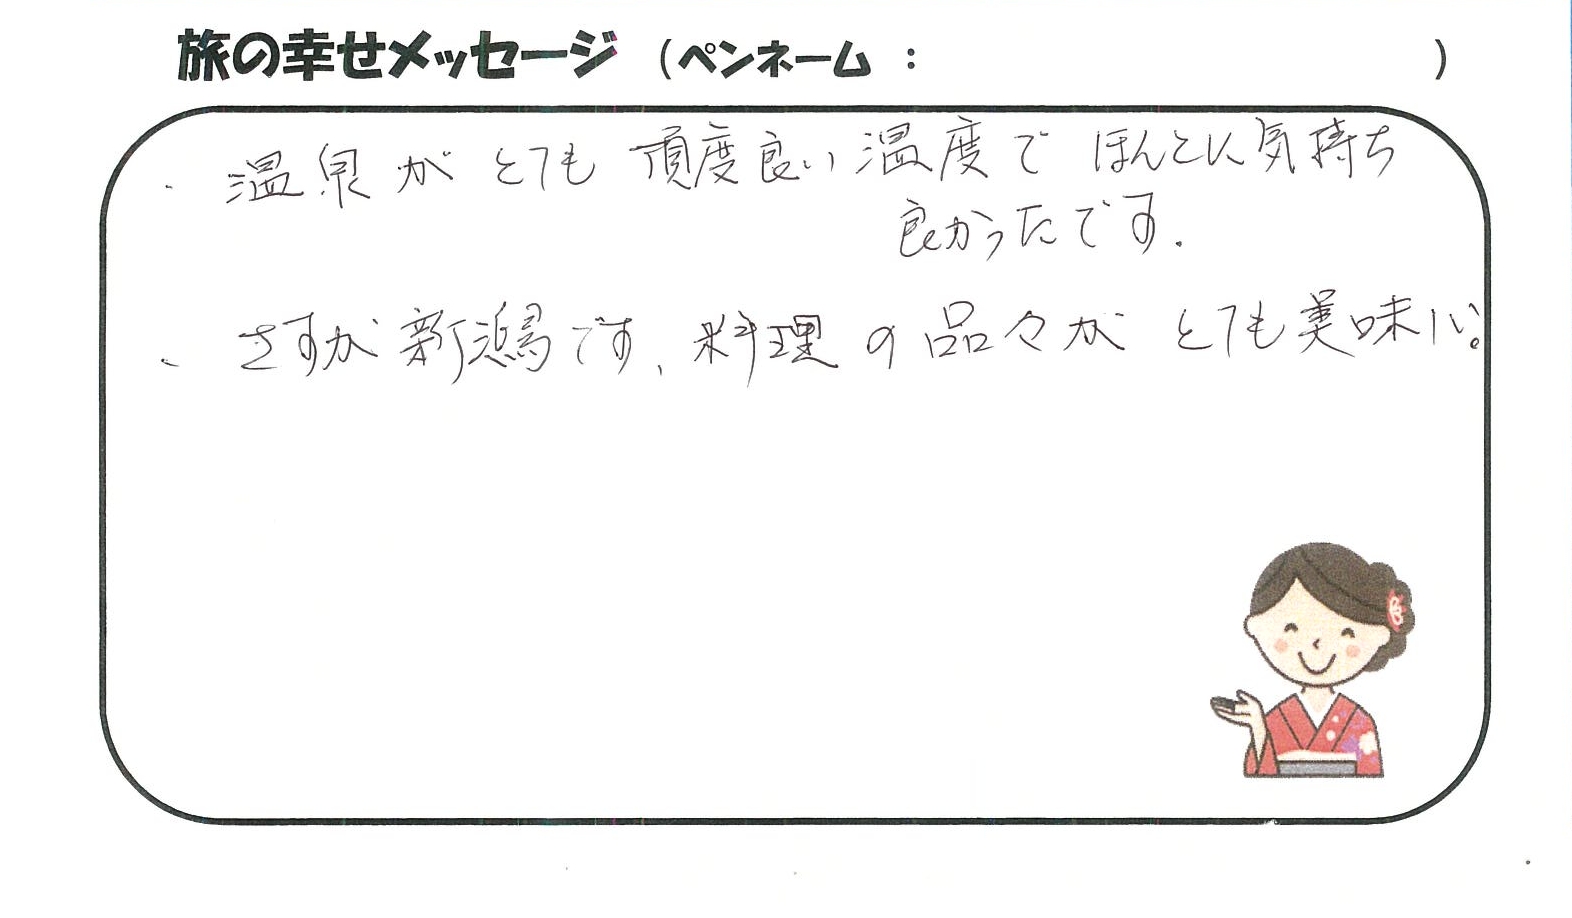 旅の幸せメッセージ (ペンネーム : )
・ 温泉が とても 頂度良い温度で ほんとに気持ち
良かったです.
・ さすが新潟です、料理の品々が とても美味い。